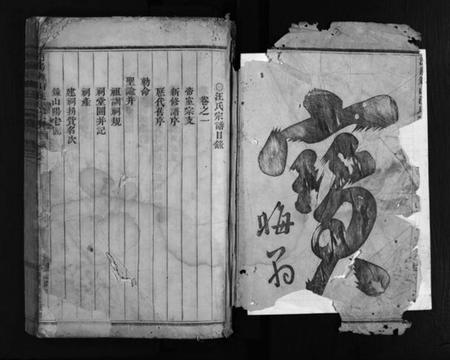 晦翁
〇汪氏宗譜目錄
卷之一
帝室宗支
新修譜序
歷代舊序
勅命
聖諭并
祖訓祠規
祠堂圖并記
祠產
建祠捐貲名次
山陽宅圖